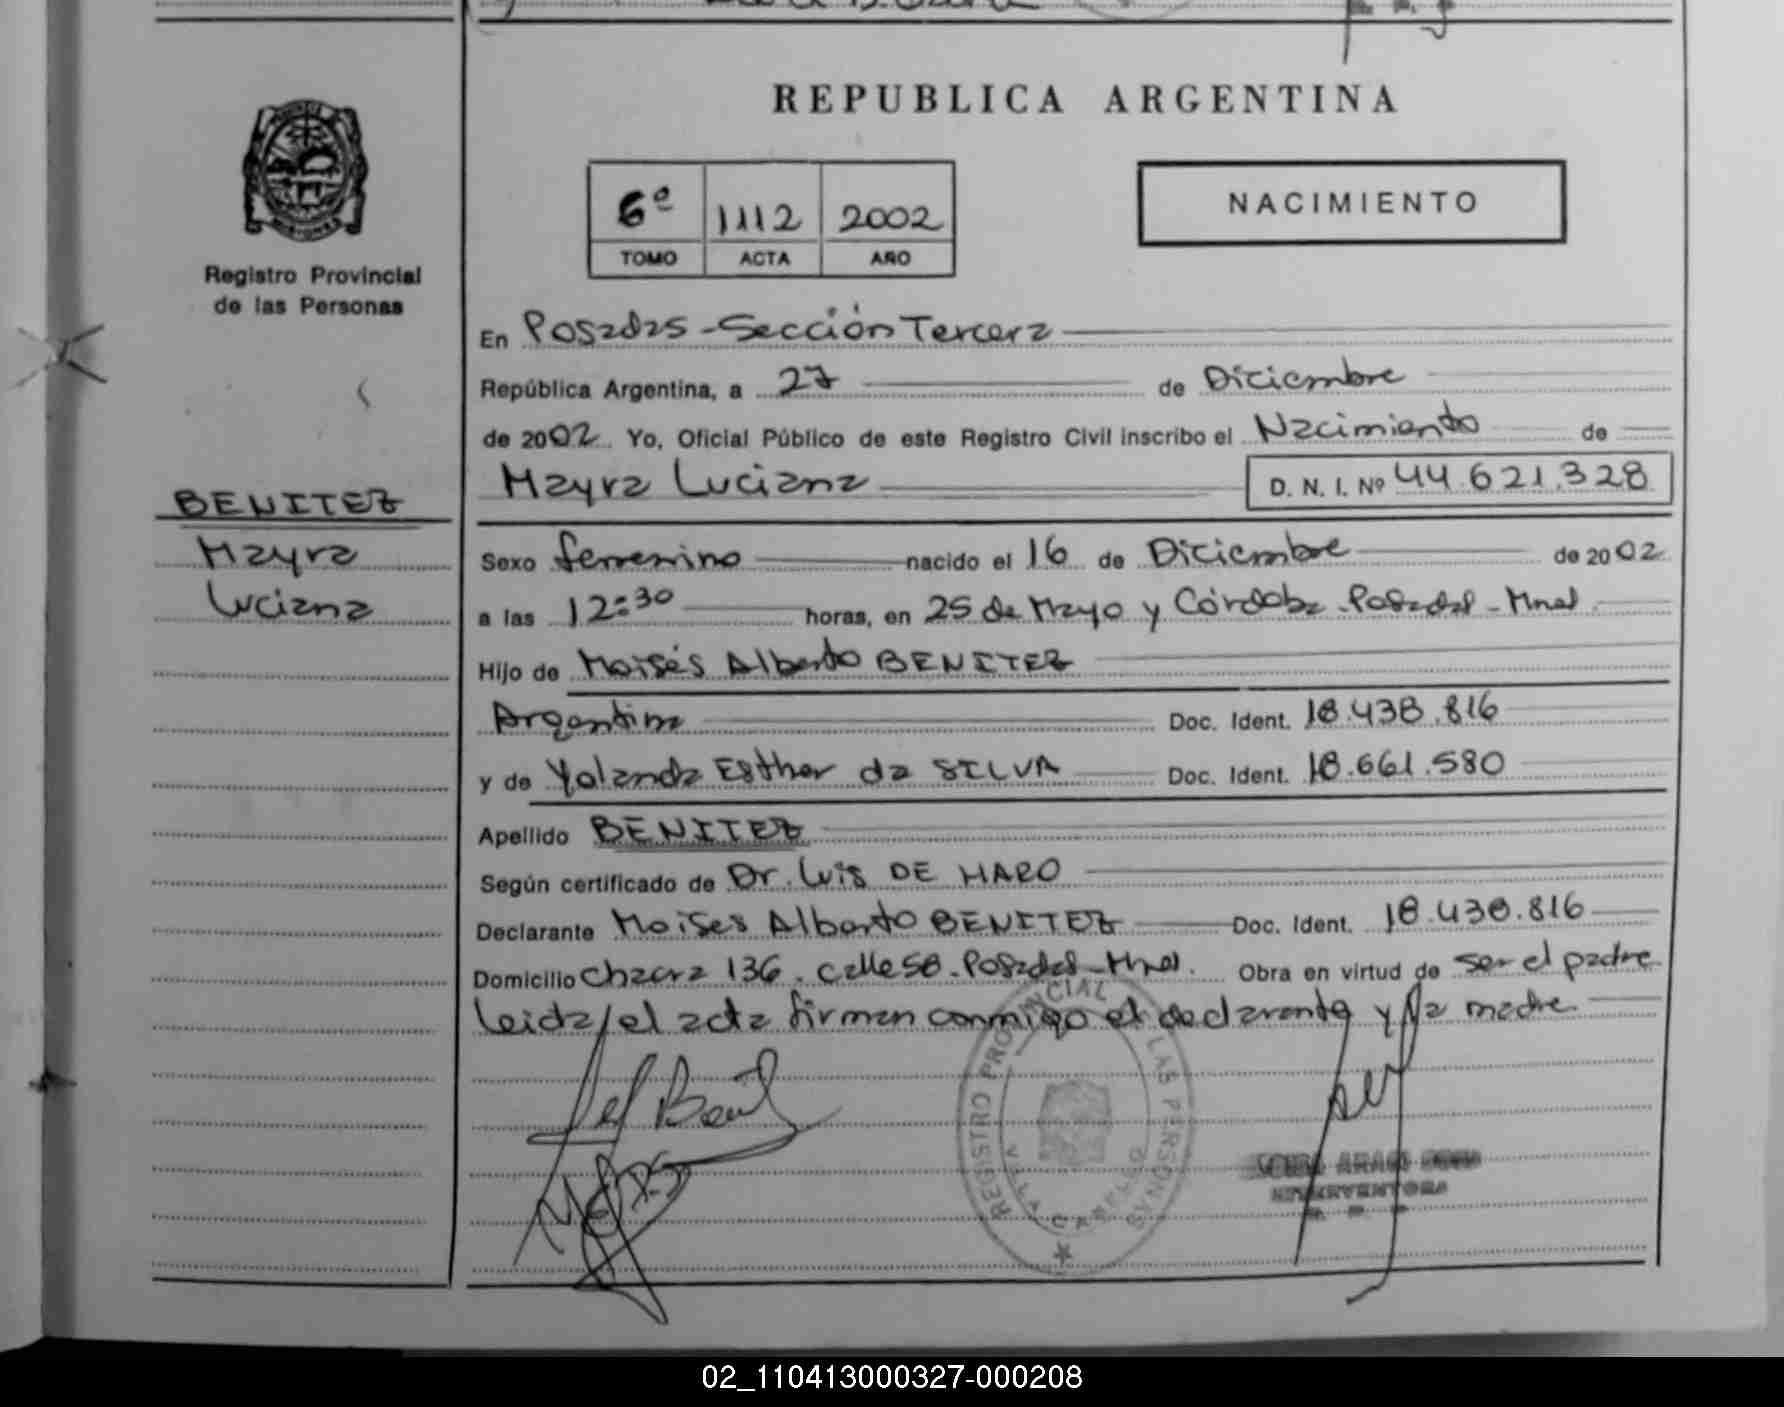 REPUBLICA ARGENTINA
6º 1112 2002
TOMO ACTA AÑO
NACIMIENTO
Registro Provincial
de las Personas
BENITEZ
Mayra
Luciana
En Posadas - Sección Tercera
República Argentina, a 27 de Diciembre
de 2002 Yo, Oficial Público de este Registro Civil inscribo el Nacimiento de
Mayra Luciana D. N. I. Nº 44.621.328
Sexo femenino nacido el 16 de Diciembre de 2002
a las 12:30 horas, en 25 de Mayo y Córdoba - Posadas - Mnes
Hijo de Moisés Alberto BENITEZ
Argentina Doc. Ident. 18.438.816
y de Yolanda Esther da SILVA Doc. Ident. 18.661.580
Apellido BENITEZ
Según certificado de Dr. Luis DE HARO
Declarante Moises Alberto BENITEZ Doc. Ident. 18.438.816
Domicilio Chacra 136. calle 58 - Posadas - Mnes. Obra en virtud de ser el padre
Leida el acta firman conmigo el declarante y la madre
REGISTRO PROVINCIAL LAS PERSONAS
VILLA CABELLO
INTERVENTORA
02_110413000327-000208